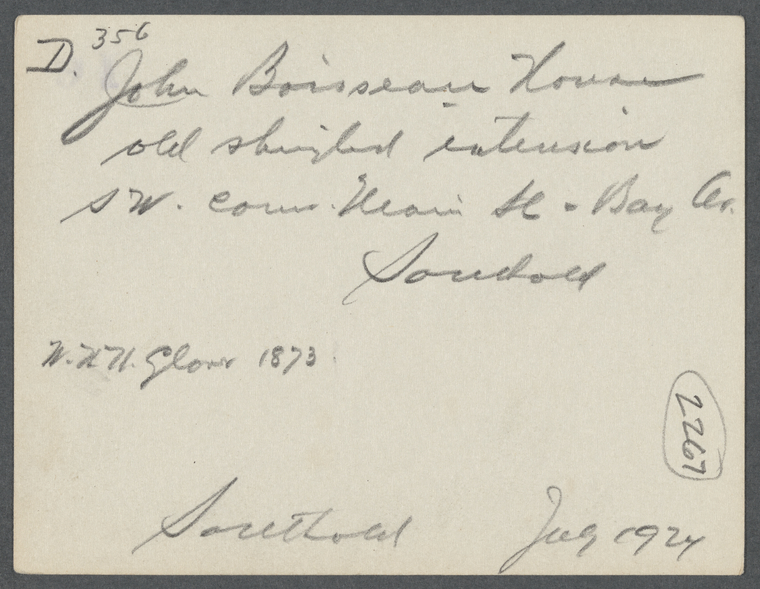 D. 356
John Boisseau House
old shingled extension
SW. corn. Main St - Bay Av.
Southold
W. H. H. Glover 1873
2267
Southold July 1924